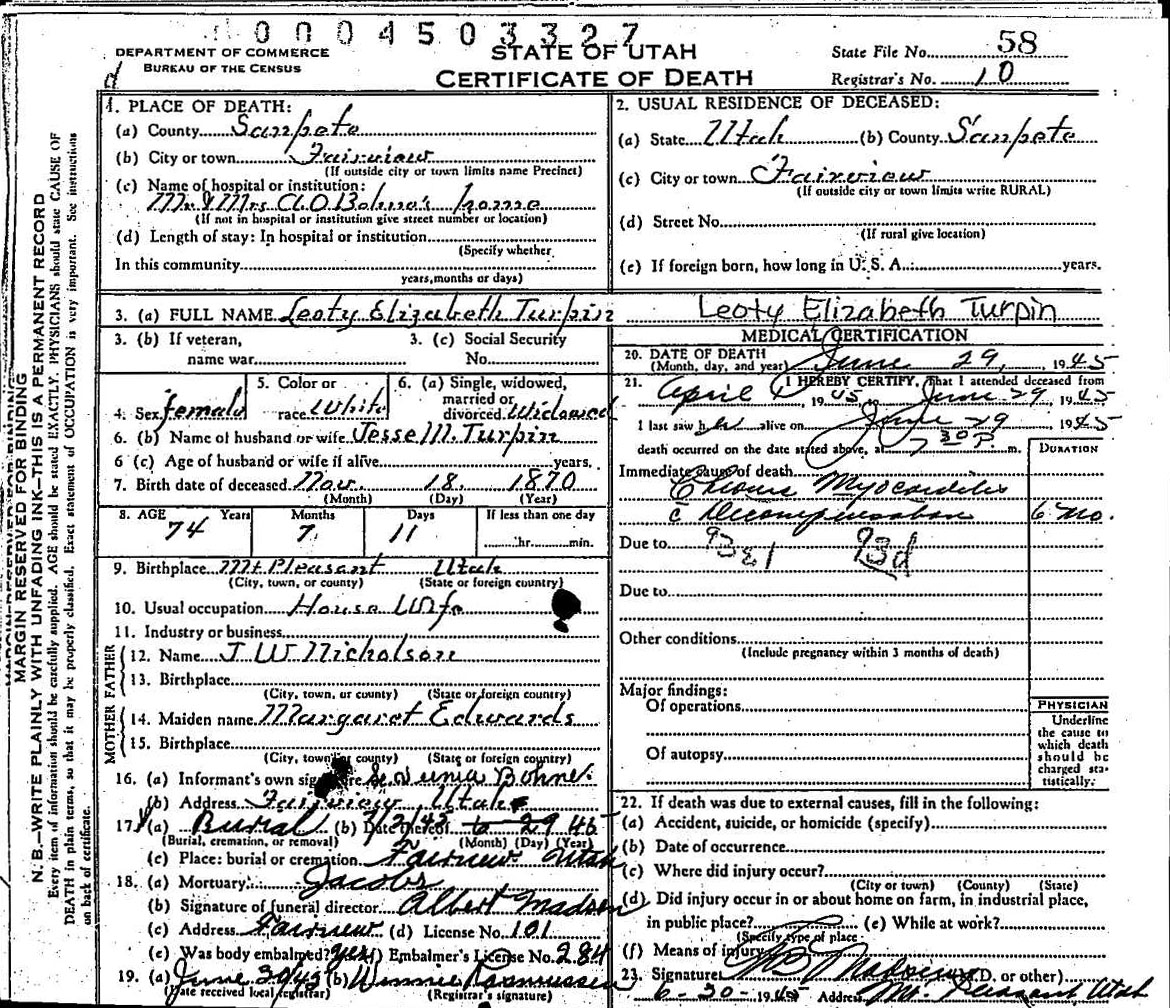 0004503327
DEPARTMENT OF COMMERCE
BUREAU OF THE CENSUS
STATE OF UTAH
CERTIFICATE OF DEATH
State File No. 58
Registrar's No. 10
d
MARGIN RESERVED FOR BINDING
N. B.—WRITE PLAINLY WITH UNFADING INK—THIS IS A PERMANENT RECORD
Every item of information should be carefully supplied. AGE should be stated EXACTLY. PHYSICIANS should state CAUSE OF
DEATH in plain terms, so that it may be properly classified. Exact statement of OCCUPATION is very important. See instructions
on back of certificate.
1. PLACE OF DEATH:
(a) County Sanpete
(b) City or town Fairview
(If outside city or town limits name Precinct)
(c) Name of hospital or institution:
Mr & Mrs A O Bohne's home
(If not in hospital or institution give street number or location)
(d) Length of stay: In hospital or institution
(Specify whether
In this community
years, months or days)
2. USUAL RESIDENCE OF DECEASED:
(a) State Utah (b) County Sanpete
(c) City or town Fairview
(If outside city or town limits write RURAL)
(d) Street No.
(If rural give location)
(e) If foreign born, how long in U. S. A.: years.
3. (a) FULL NAME Leoty Elizabeth Turpin Leoty Elizabeth Turpin
3. (b) If veteran, name war
3. (c) Social Security No.
4. Sex female
5. Color or race White
6. (a) Single, widowed, married or divorced Widowed
6. (b) Name of husband or wife Jesse M. Turpin
6 (c) Age of husband or wife if alive years.
7. Birth date of deceased Nov. 18. 1870
(Month) (Day) (Year)
8. AGE Years Months Days If less than one day
74 7 11 hr. min.
9. Birthplace Mt Pleasant Utah
(City, town, or county) (State or foreign country)
10. Usual occupation House Wife
11. Industry or business
FATHER
12. Name J W Nicholson
13. Birthplace
(City, town, or county) (State or foreign country)
MOTHER
14. Maiden name Margaret Edwards
15. Birthplace
(City, town or county) (State or foreign country)
16. (a) Informant's own signature Bohne
(b) Address Fairview, Utah
17. (a) Burial (b) Date thereof 7/2/45 6 29 45
(Burial, cremation, or removal) (Month) (Day) (Year)
(c) Place: burial or cremation Fairview Utah
18. (a) Mortuary: Jacobs
(b) Signature of funeral director Albert Madsen
(c) Address Fairview (d) License No. 101
(e) Was body embalmed? yes (f) Embalmer's License No. 284
19. (a) June 30/45 (b) Winnie Rasmussen
(Date received local registrar) (Registrar's signature)
MEDICAL CERTIFICATION
20. DATE OF DEATH
(Month, day, and year) June 29, 1945
21. I HEREBY CERTIFY, That I attended deceased from
April 1945 to June 29, 1945
I last saw her alive on June 29 1945
death occurred on the date stated above, at 7 30 P. m.
DURATION
Immediate cause of death
Chronic Myocarditis
c Decompensation 6 mo.
Due to 93d
Due to
Other conditions
(Include pregnancy within 3 months of death)
Major findings:
Of operations
Of autopsy
PHYSICIAN
Underline
the cause to
which death
should be
charged sta-
tistically.
22. If death was due to external causes, fill in the following:
(a) Accident, suicide, or homicide (specify)
(b) Date of occurrence
(c) Where did injury occur?
(City or town) (County) (State)
(d) Did injury occur in or about home on farm, in industrial place,
in public place? (e) While at work?
(Specify type of place
(f) Means of injury
23. Signature Madsen (M. D. or other)
6-30-1945 Address Mt. Pleasant Utah